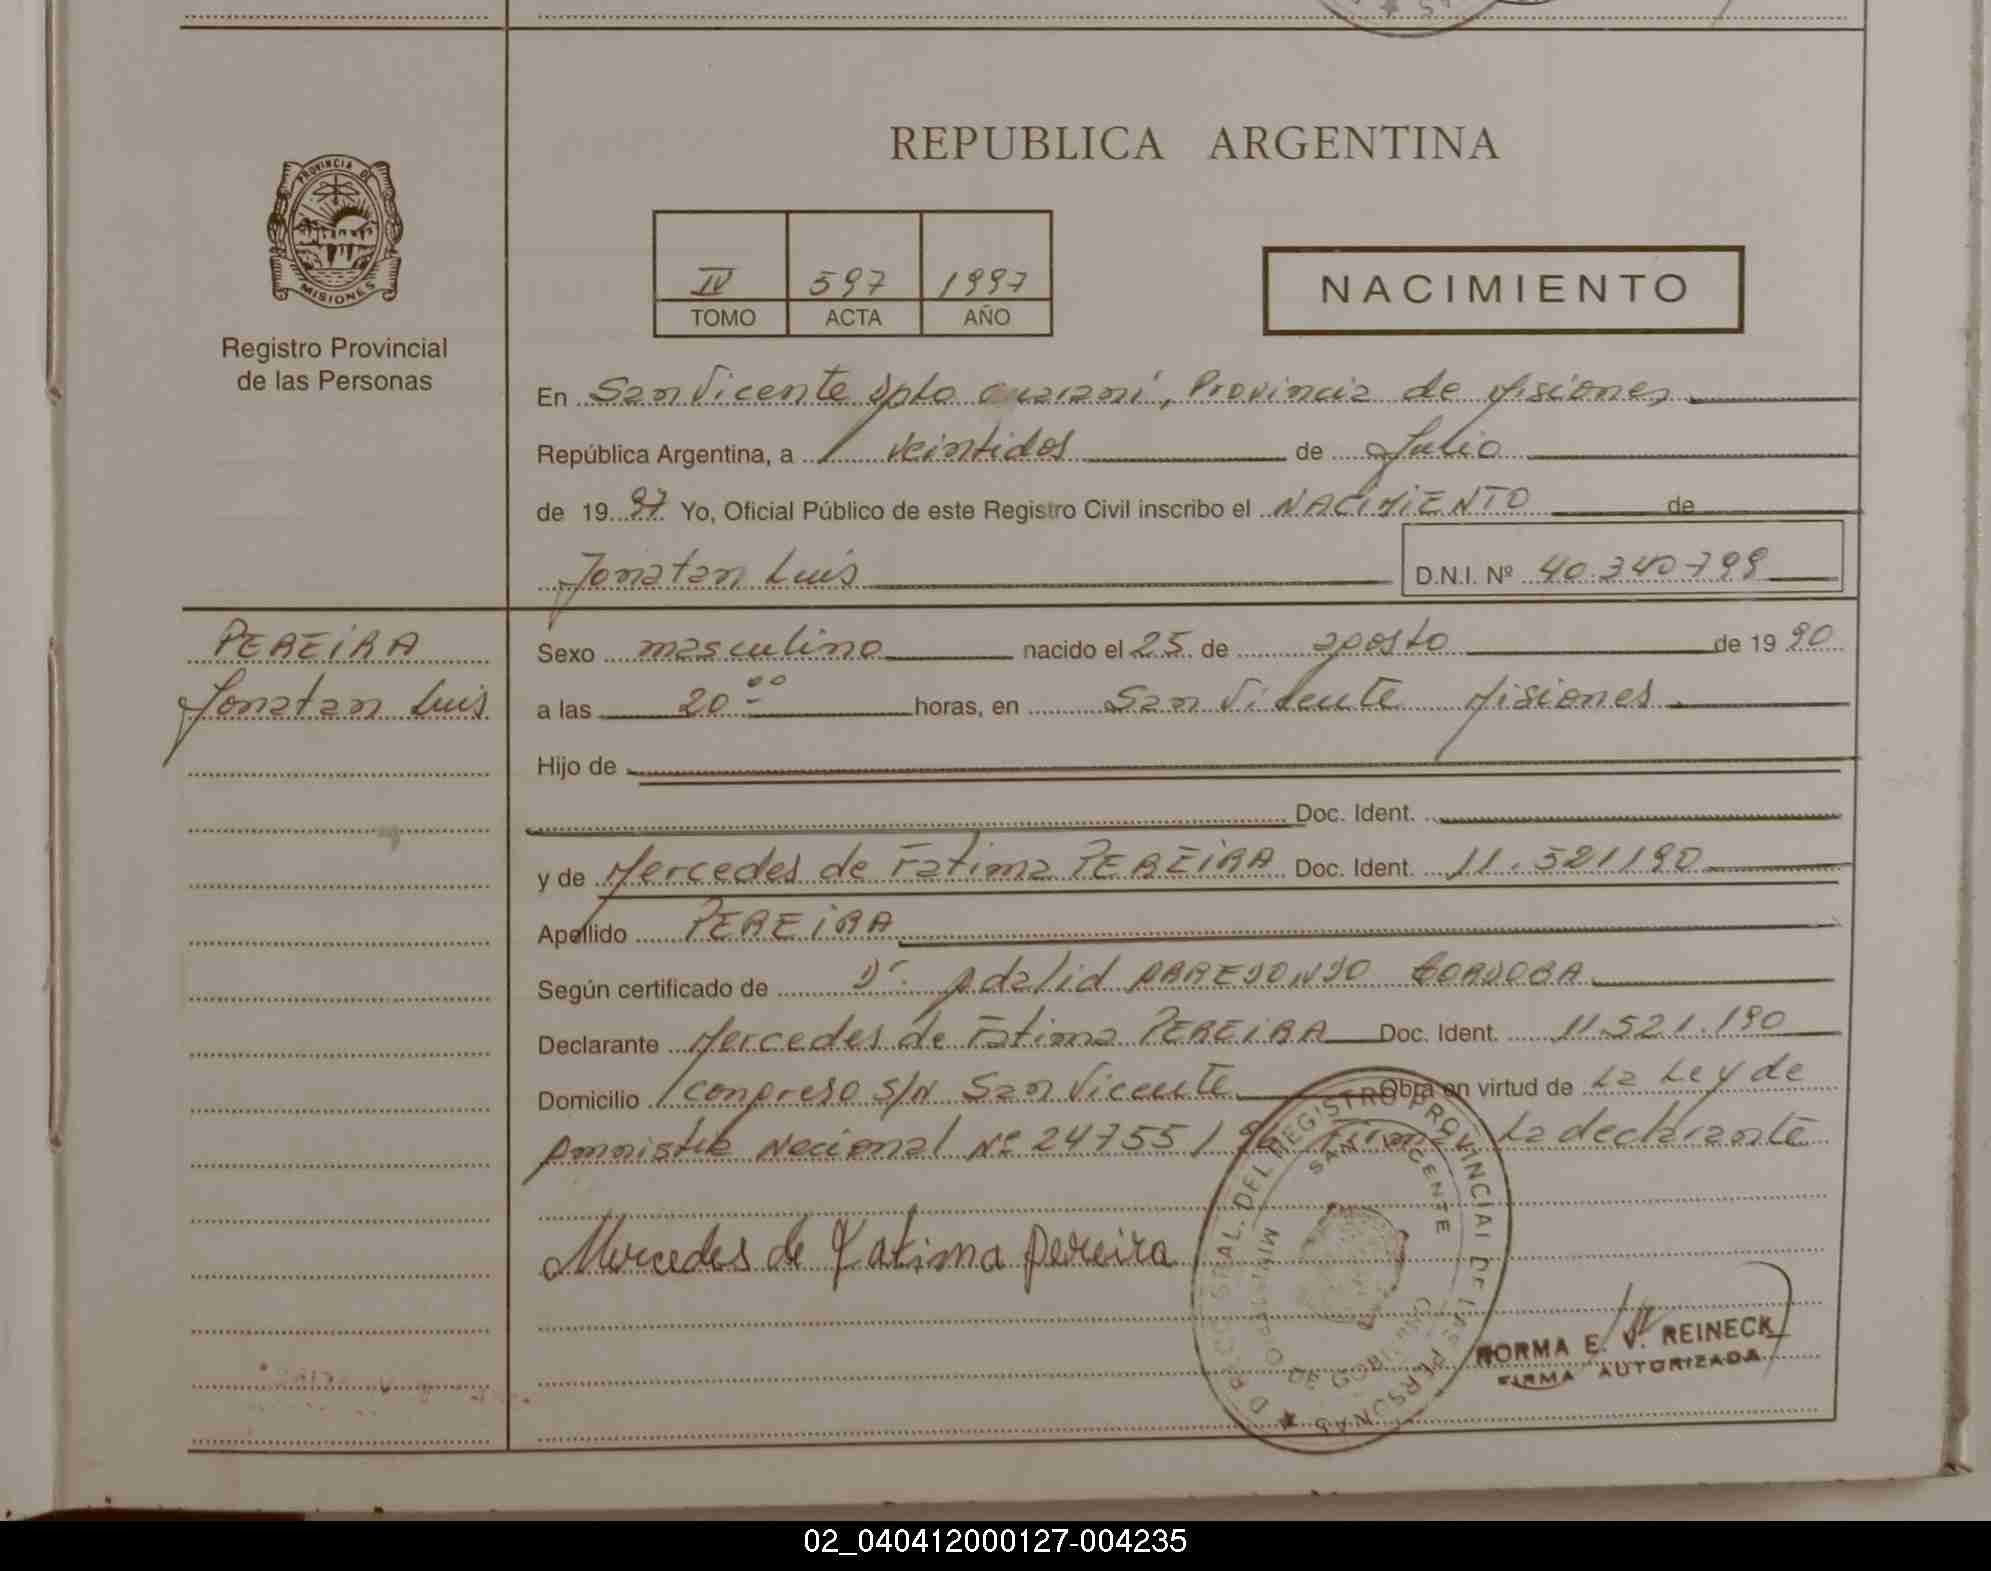 REPUBLICA ARGENTINA
PROVINCIA DE
MISIONES
Registro Provincial
de las Personas
IV 597 1997
TOMO ACTA AÑO
NACIMIENTO
En San Vicente Dpto Guaraní, Provincia de Misiones
República Argentina, a veintidos de Julio
de 19 97 Yo, Oficial Público de este Registro Civil inscribo el NACIMIENTO de
Jonatan Luis D.N.I. Nº 40.340.799
PEREIRA
Jonatan Luis
Sexo masculino nacido el 25 de agosto de 19 90
a las 20 00 horas, en San Vicente Misiones
Hijo de
Doc. Ident.
y de Mercedes de Fatima PEREIRA Doc. Ident. 11.521190
Apellido PEREIRA
Según certificado de Dr. Adalid ARREDONDO CORDOBA
Declarante Mercedes de Fatima PEREIRA Doc. Ident. 11.521.190
Domicilio Congreso S/N San Vicente Obra en virtud de La Ley de
Amnistia Nacional Nº 24755/96 Firma La declarante
Mercedes de Fatima Pereira
DEL REGISTRO PROVINCIAL DE LAS PERSONAS
SAN VICENTE
MINISTERIO DE GOBIERNO
NORMA E. V. REINECK
FIRMA AUTORIZADA
02_040412000127-004235